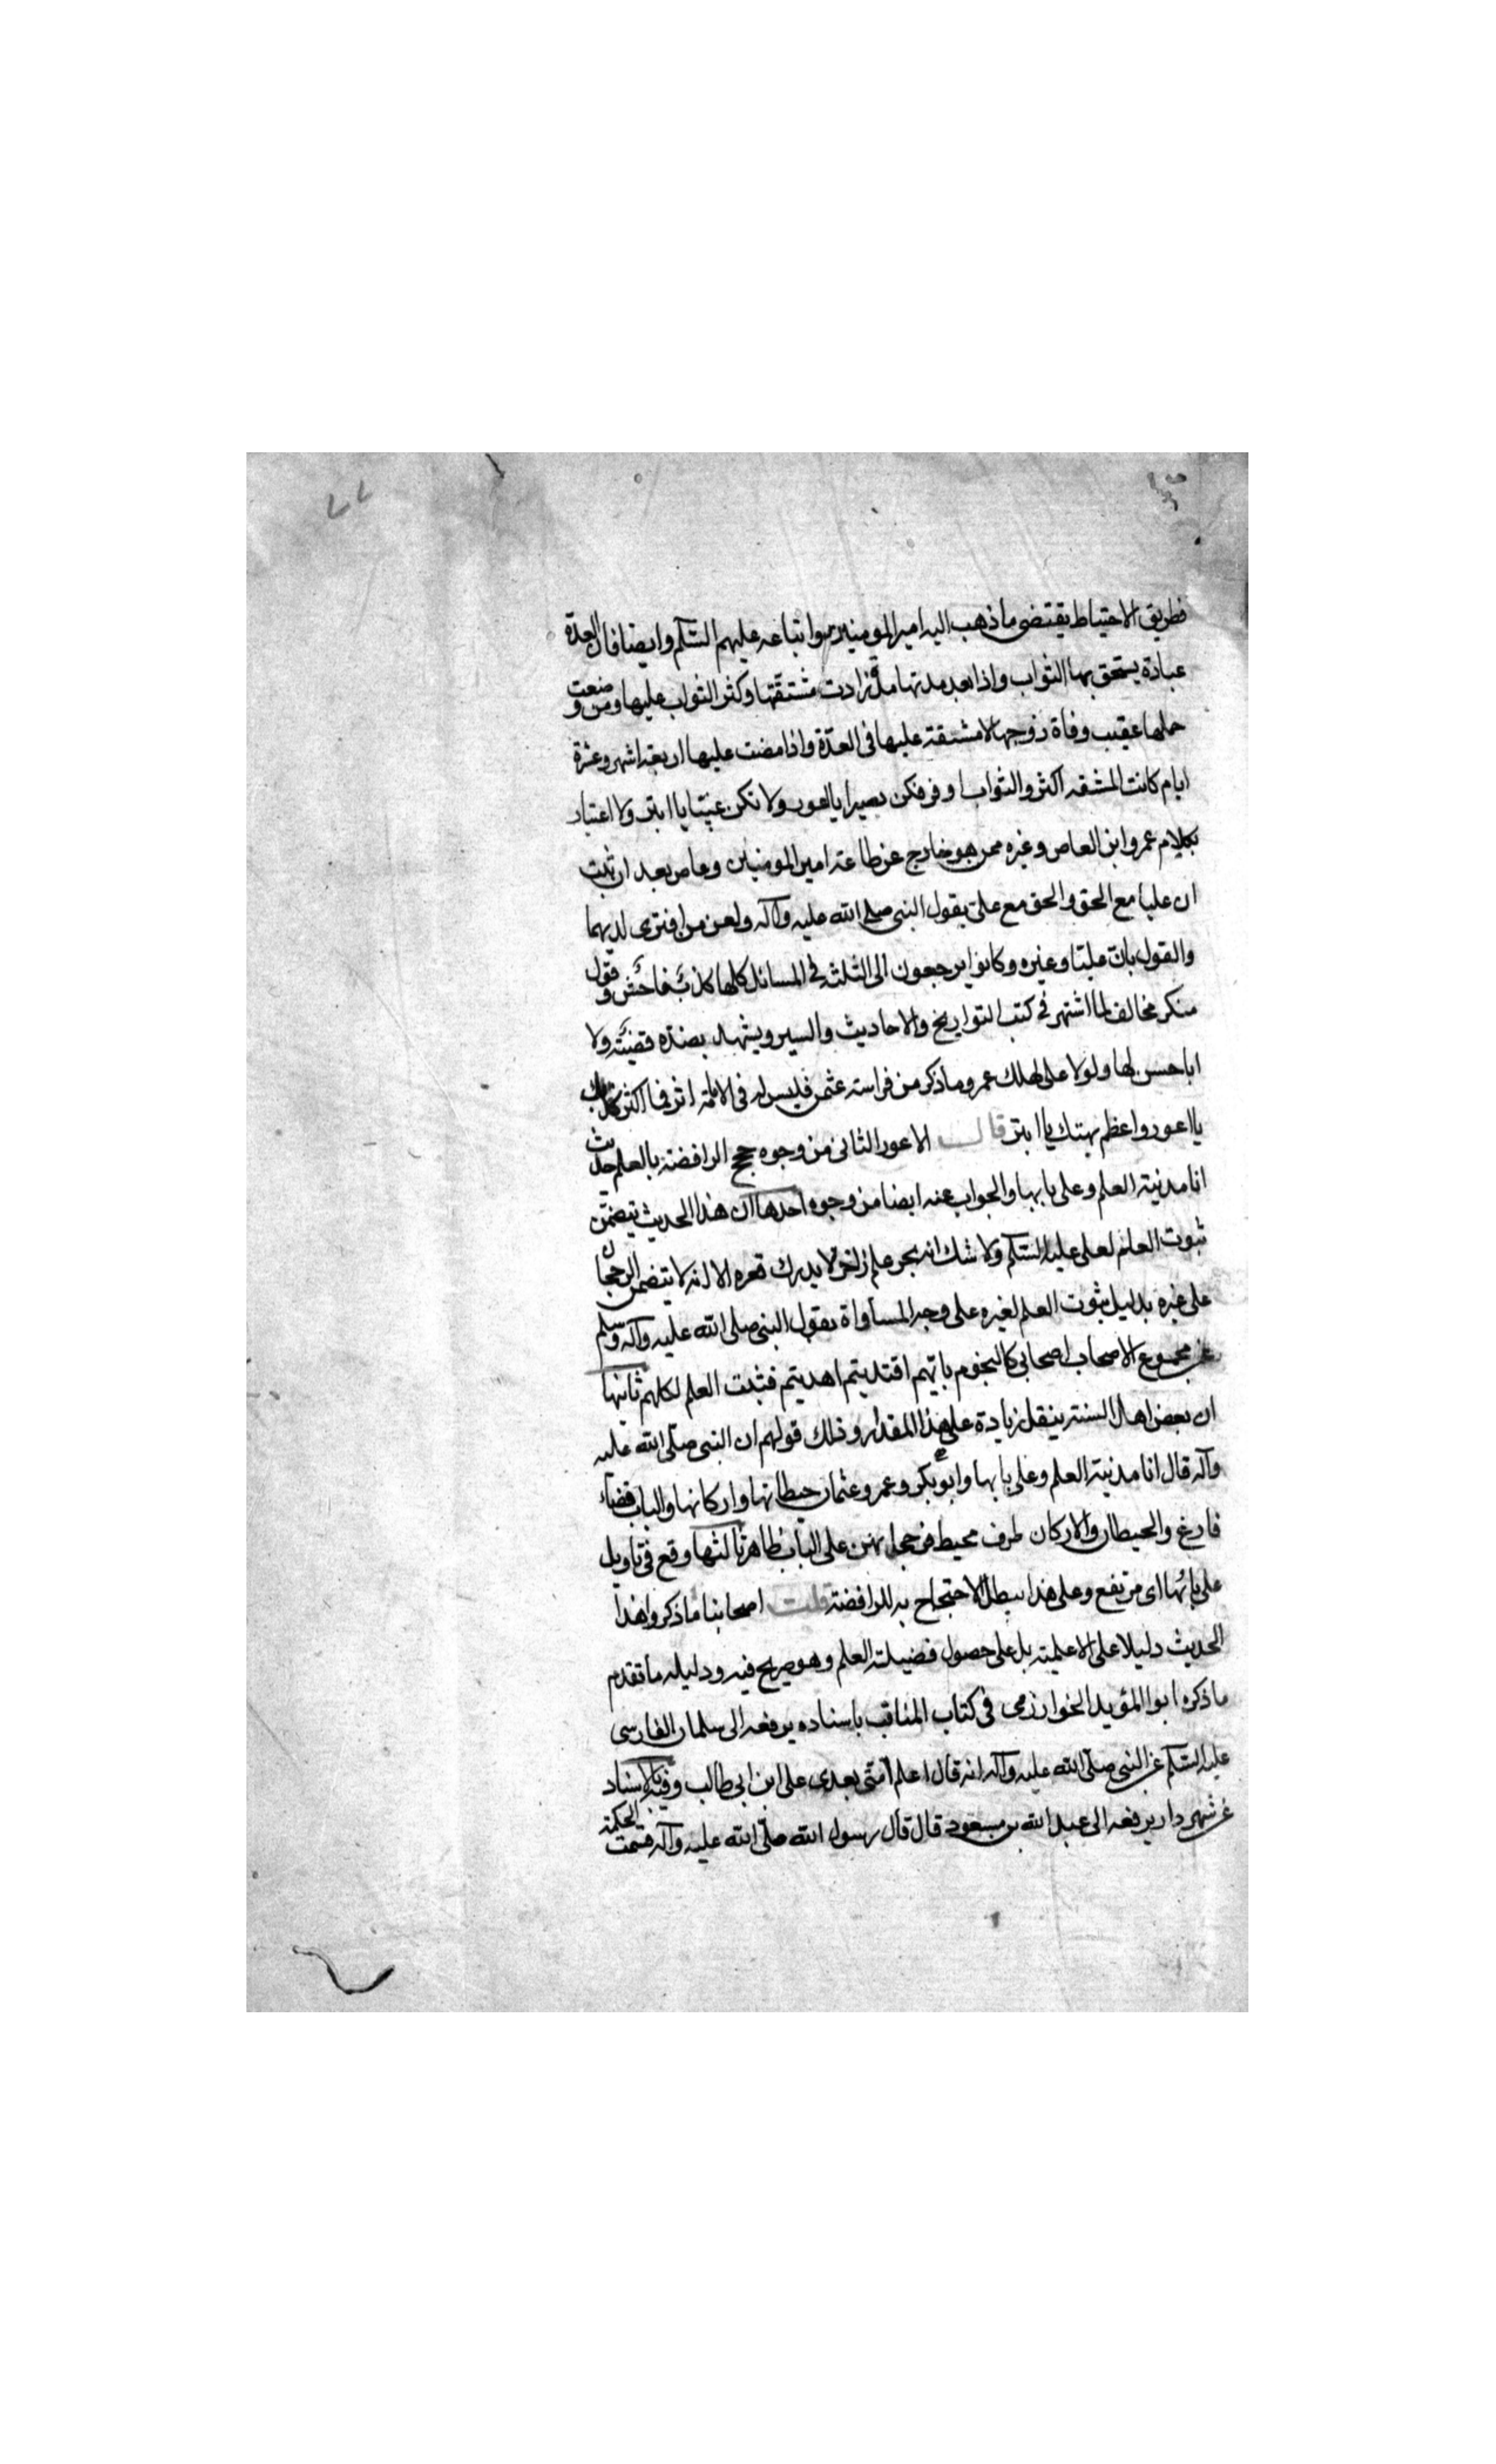 ٧٧
فطريق الاحتياط يقتضى ما ذهب اليه امير المومنين واتباعه عليهم السلم وايضا فان العدة
عبادة يستحق بها الثواب واذا بعد مدتها مدة زادت مشتقتها وكثر الثواب عليها ومن وضعت
حملها عقيب وفاة زوجها لا مشتقة عليها فى العدة واذا مضت عليها اربعة اشهر وعشرة
ايام كانت المشقه اكثر والثواب اوفر فكن بصيرا يا اعور ولا تكن غبيا يا ابتر ولا اعتبار
بكلام عمرو ابن العاص وغيره ممن هو خارج عن طاعة امير المومنين وعاص بعد ان ثبت
ان عليا مع الحق والحق مع على بقول النبى صلى الله عليه وآله ولعن من افترى لديهما
والقول بان عليا وغيره وكانوا يرجعون الى الثلثه فى المسائل كلها كذب فاحش وقول
منكر مخالف لما اشتهر فى كتب التواريخ والاحاديث والسير ويشهد بضده قضية ولا
ابا حسن لها ولولا على لهلك عمر وما ذكر من فراسة عثمن فليس له فى الامة اثر فما اكثر كذبك
يا اعور واعظم بهتك يا ابتر قال الاعور الثانى من وجوه حجج الرافضة بالعلم حديث
انا مدينة العلم وعلى بابها والجواب عنه ايضا من وجوه احدها ان هذا الحديث يتضمن
ثبوت العلم لعلى عليه السلم ولا شك انه بحر علم زاخر لا يدرك قعره الا انه لا يتضمن الرجحان
على غيره بدليل ثبوت العلم لغيره على وجه المساواة بقول النبى صلى الله عليه وآله وسلم
عن مجموع الاصحاب اصحابى كالنجوم بايهم اقتديتم اهديتم فثبت العلم لكلهم ثانيها
ان بعض اهل السنة ينقل زيادة على هذا المقدار وذلك قولهم ان النبى صلى الله عليه
وآله قال انا مدينة العلم وعلى بابها وابو بكر وعمر وعثمان حيطانها واركانها والباب فضاء
فارغ والحيطان والاركان طرف محيط فرجحانهن على الباب ظاهر ثالثها وقع فى تاويل
على بابها اى مرتفع وعلى هذا يبطل الاحتجاج به للرافضة قلت اصحابنا ما ذكروا هذا
الحديث دليلا على الاعلمية بل على حصول فضيلة العلم وهو صريح فيه ودليله ما تقدم
ما ذكره ابو المؤيد الخوارزمى فى كتاب المناقب باسناده يرفعه الى سلمان الفارسى
عليه السلم عن النبى صلى الله عليه وآله انه قال اعلم امتى بعدى على ابن ابى طالب وفيه بالاسناد
عن شهردار يرفعه الى عبد الله بن مسعود قال قال رسول الله صلى الله عليه وآله قسمت الحكمة